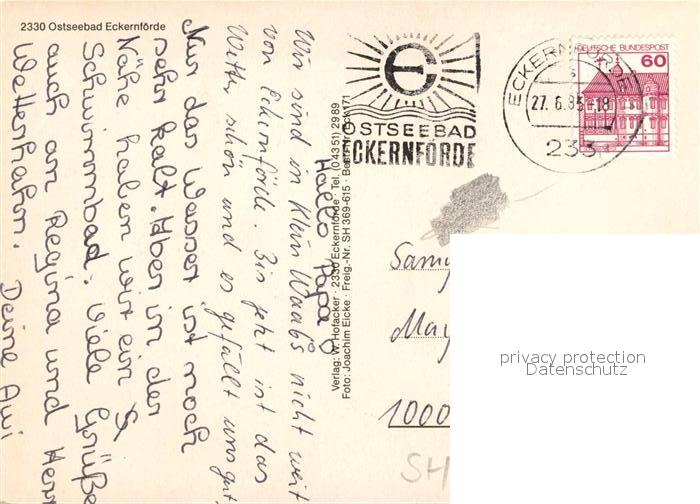 2330 Ostseebad Eckernförde
Hallo Papa
Wir sind in Klein Waabs nicht weit
von Eckernförde. Bis jetzt ist das
Wetter schön und es gefällt uns gut,
Nur das Wasser ist noch
sehr kalt. Aber in der
Nähe haben wir ein S
Schwimmbad. Viele Grüße
auch an Regina und Herr
Wetterhahn.
Deine Awi
Verlag: W. Hofacker · 2330 Eckernförde · Tel. (0 43 51) 29 89
Foto: Joachim Eicke · Freig.-Nr. SH 369-615 · Best.-Nr. Eck 171
OSTSEEBAD
ECKERNFÖRDE
ECKERNFÖRDE
27.6.85-18
233
DEUTSCHE BUNDESPOST
60
Sam
May
1000
SH
privacy protection
Datenschutz